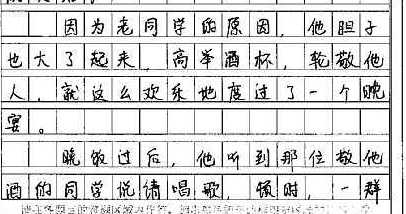 因为老同学的原因，他胆子
也大了起来，高举酒杯，轮敬他
人，就这么欢乐地度过了一个晚
宴。
晚饭过后，他听到那位敬他
酒的同学说请唱歌，顿时，一群